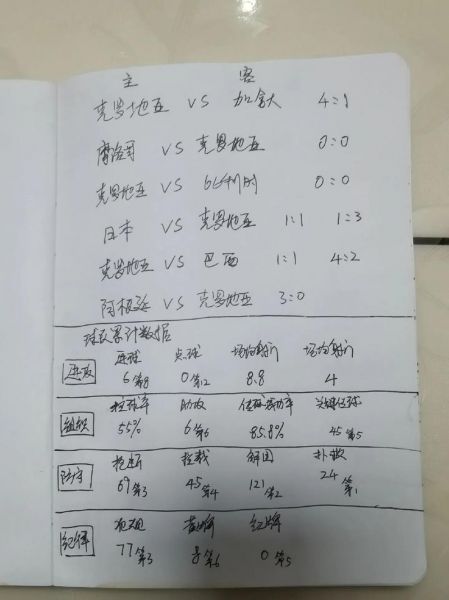 主 客
克罗地亚 VS 加拿大 4:1
摩洛哥 VS 克罗地亚 0:0
克罗地亚 VS 比利时 0:0
日本 VS 克罗地亚 1:1 1:3
克罗地亚 VS 巴西 1:1 4:2
阿根廷 VS 克罗地亚 3:0
球队累计数据
进攻 进球 点球 场均射门 场均射门
6第8 0第12 8.8 4
组织 控球率 助攻 传球成功率 关键传球
55% 6第6 85.8% 45第5
防守 抢断 拦截 解围 扑救
69第3 45第4 121第2 24第1
纪律 犯规 黄牌 红牌
77第3 8第6 0第5